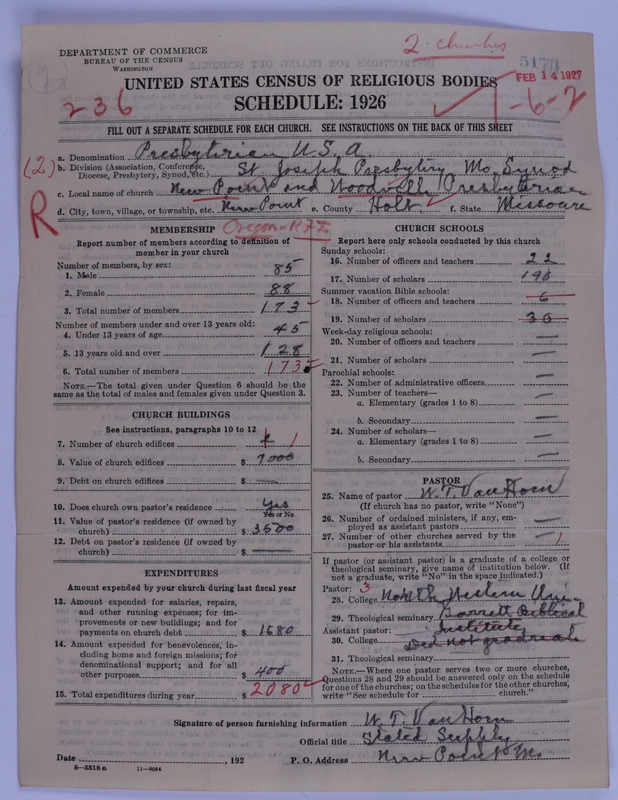 2 churches
DEPARTMENT OF COMMERCE
BUREAU OF THE CENSUS
WASHINGTON
5173
FEB 14 1927
UNITED STATES CENSUS OF RELIGIOUS BODIES
236
SCHEDULE: 1926
1-6-2
FILL OUT A SEPARATE SCHEDULE FOR EACH CHURCH. SEE INSTRUCTIONS ON THE BACK OF THIS SHEET
a. Denomination Presbyterian U.S.A
(2) b. Division (Association, Conference, Diocese, Presbytery, Synod, etc.) St. Joseph Presbytery Mo. Synod
c. Local name of church New Point and Woodville Presbyterian
d. City, town, village, or township, etc. New Point e. County Holt f. State Missouri
R
Oregon
MEMBERSHIP
Report number of members according to definition of
member in your church
Number of members, by sex:
1. Male 85
2. Female 88
3. Total number of members 173
Number of members under and over 13 years old:
4. Under 13 years of age 45
5. 13 years old and over 128
6. Total number of members 173
NOTE.—The total given under Question 6 should be the
same as the total of males and females given under Question 3.
CHURCH BUILDINGS
See instructions, paragraphs 10 to 12
7. Number of church edifices 1
8. Value of church edifices $ 7000
9. Debt on church edifices $ —
10. Does church own pastor's residence Yes
Yes or No
11. Value of pastor's residence (if owned by
church) $ 3500
12. Debt on pastor's residence (if owned by
church) $ —
EXPENDITURES
Amount expended by your church during last fiscal year
13. Amount expended for salaries, repairs,
and other running expenses; for im-
provements or new buildings; and for
payments on church debt $ 1680
14. Amount expended for benevolences, in-
cluding home and foreign missions; for
denominational support; and for all
other purposes $ 400
15. Total expenditures during year $ 2080
CHURCH SCHOOLS
Report here only schools conducted by this church
Sunday schools:
16. Number of officers and teachers 22
17. Number of scholars 190
Summer vacation Bible schools:
18. Number of officers and teachers 6
19. Number of scholars 30
Week-day religious schools:
20. Number of officers and teachers —
21. Number of scholars —
Parochial schools:
22. Number of administrative officers —
23. Number of teachers—
a. Elementary (grades 1 to 8) —
b. Secondary —
24. Number of scholars—
a. Elementary (grades 1 to 8) —
b. Secondary —
PASTOR
25. Name of pastor W. T. Van Horn
(If church has no pastor, write "None")
26. Number of ordained ministers, if any, em-
ployed as assistant pastors —
27. Number of other churches served by the
pastor or his assistants 1
If pastor (or assistant pastor) is a graduate of a college or
theological seminary, give name of institution below. (If
not a graduate, write "No" in the space indicated.)
Pastor: 3
28. College North Western Uni-
29. Theological seminary Garrett Biblical
Assistant pastor: Institute
30. College Did not graduate
31. Theological seminary
NOTE.—Where one pastor serves two or more churches,
Questions 28 and 29 should be answered only on the schedule
for one of the churches; on the schedules for the other churches,
write "See schedule for church."
Signature of person furnishing information W. T. Van Horn
Official title Stated Supply
Date , 192 P. O. Address New Point Mo.
8—5518a 11—9054